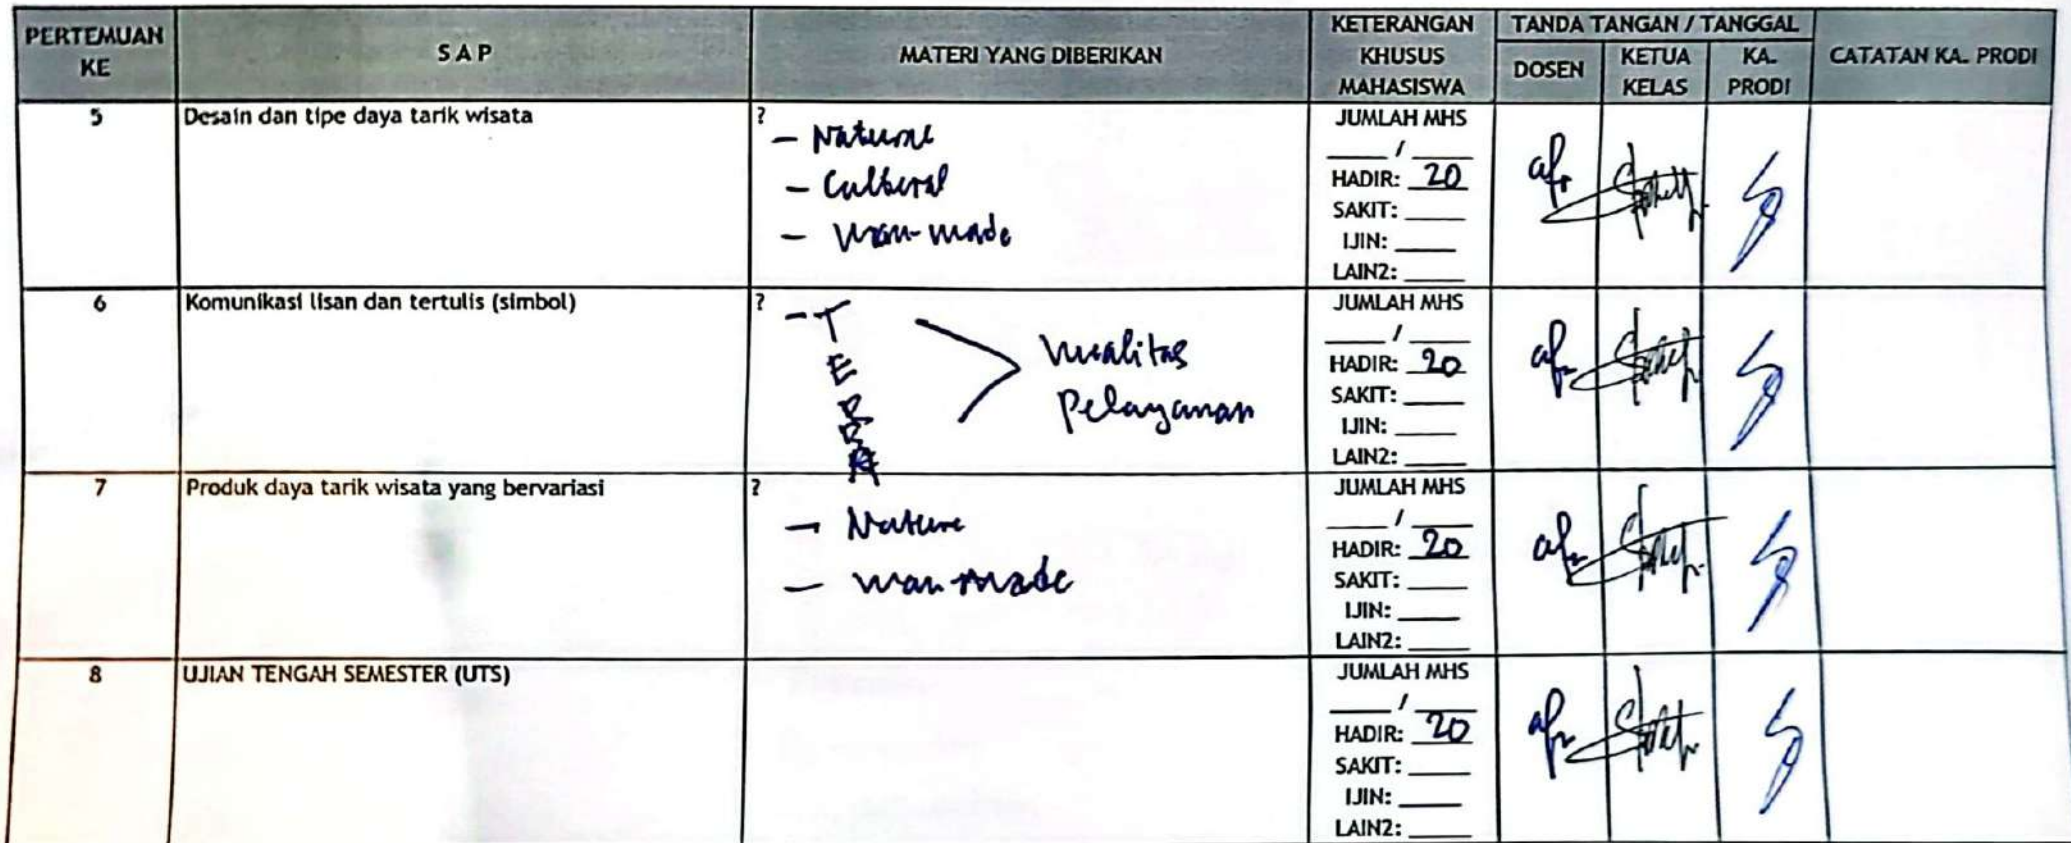 PERTEMUAN KE
S A P
MATERI YANG DIBERIKAN
KETERANGAN KHUSUS MAHASISWA
TANDA TANGAN / TANGGAL
DOSEN
KETUA KELAS
KA. PRODI
CATATAN KA. PRODI
5
Desain dan tipe daya tarik wisata
?
- Nature
- Cultural
- Man-made
JUMLAH MHS
____ / ____
HADIR: 20
SAKIT: ____
IJIN: ____
LAIN2: ____
6
Komunikasi lisan dan tertulis (simbol)
?
- T
E
R
R
A
kualitas
Pelayanan
JUMLAH MHS
____ / ____
HADIR: 20
SAKIT: ____
IJIN: ____
LAIN2: ____
7
Produk daya tarik wisata yang bervariasi
?
- Nature
- man-made
JUMLAH MHS
____ / ____
HADIR: 20
SAKIT: ____
IJIN: ____
LAIN2: ____
8
UJIAN TENGAH SEMESTER (UTS)
JUMLAH MHS
____ / ____
HADIR: 20
SAKIT: ____
IJIN: ____
LAIN2: ____